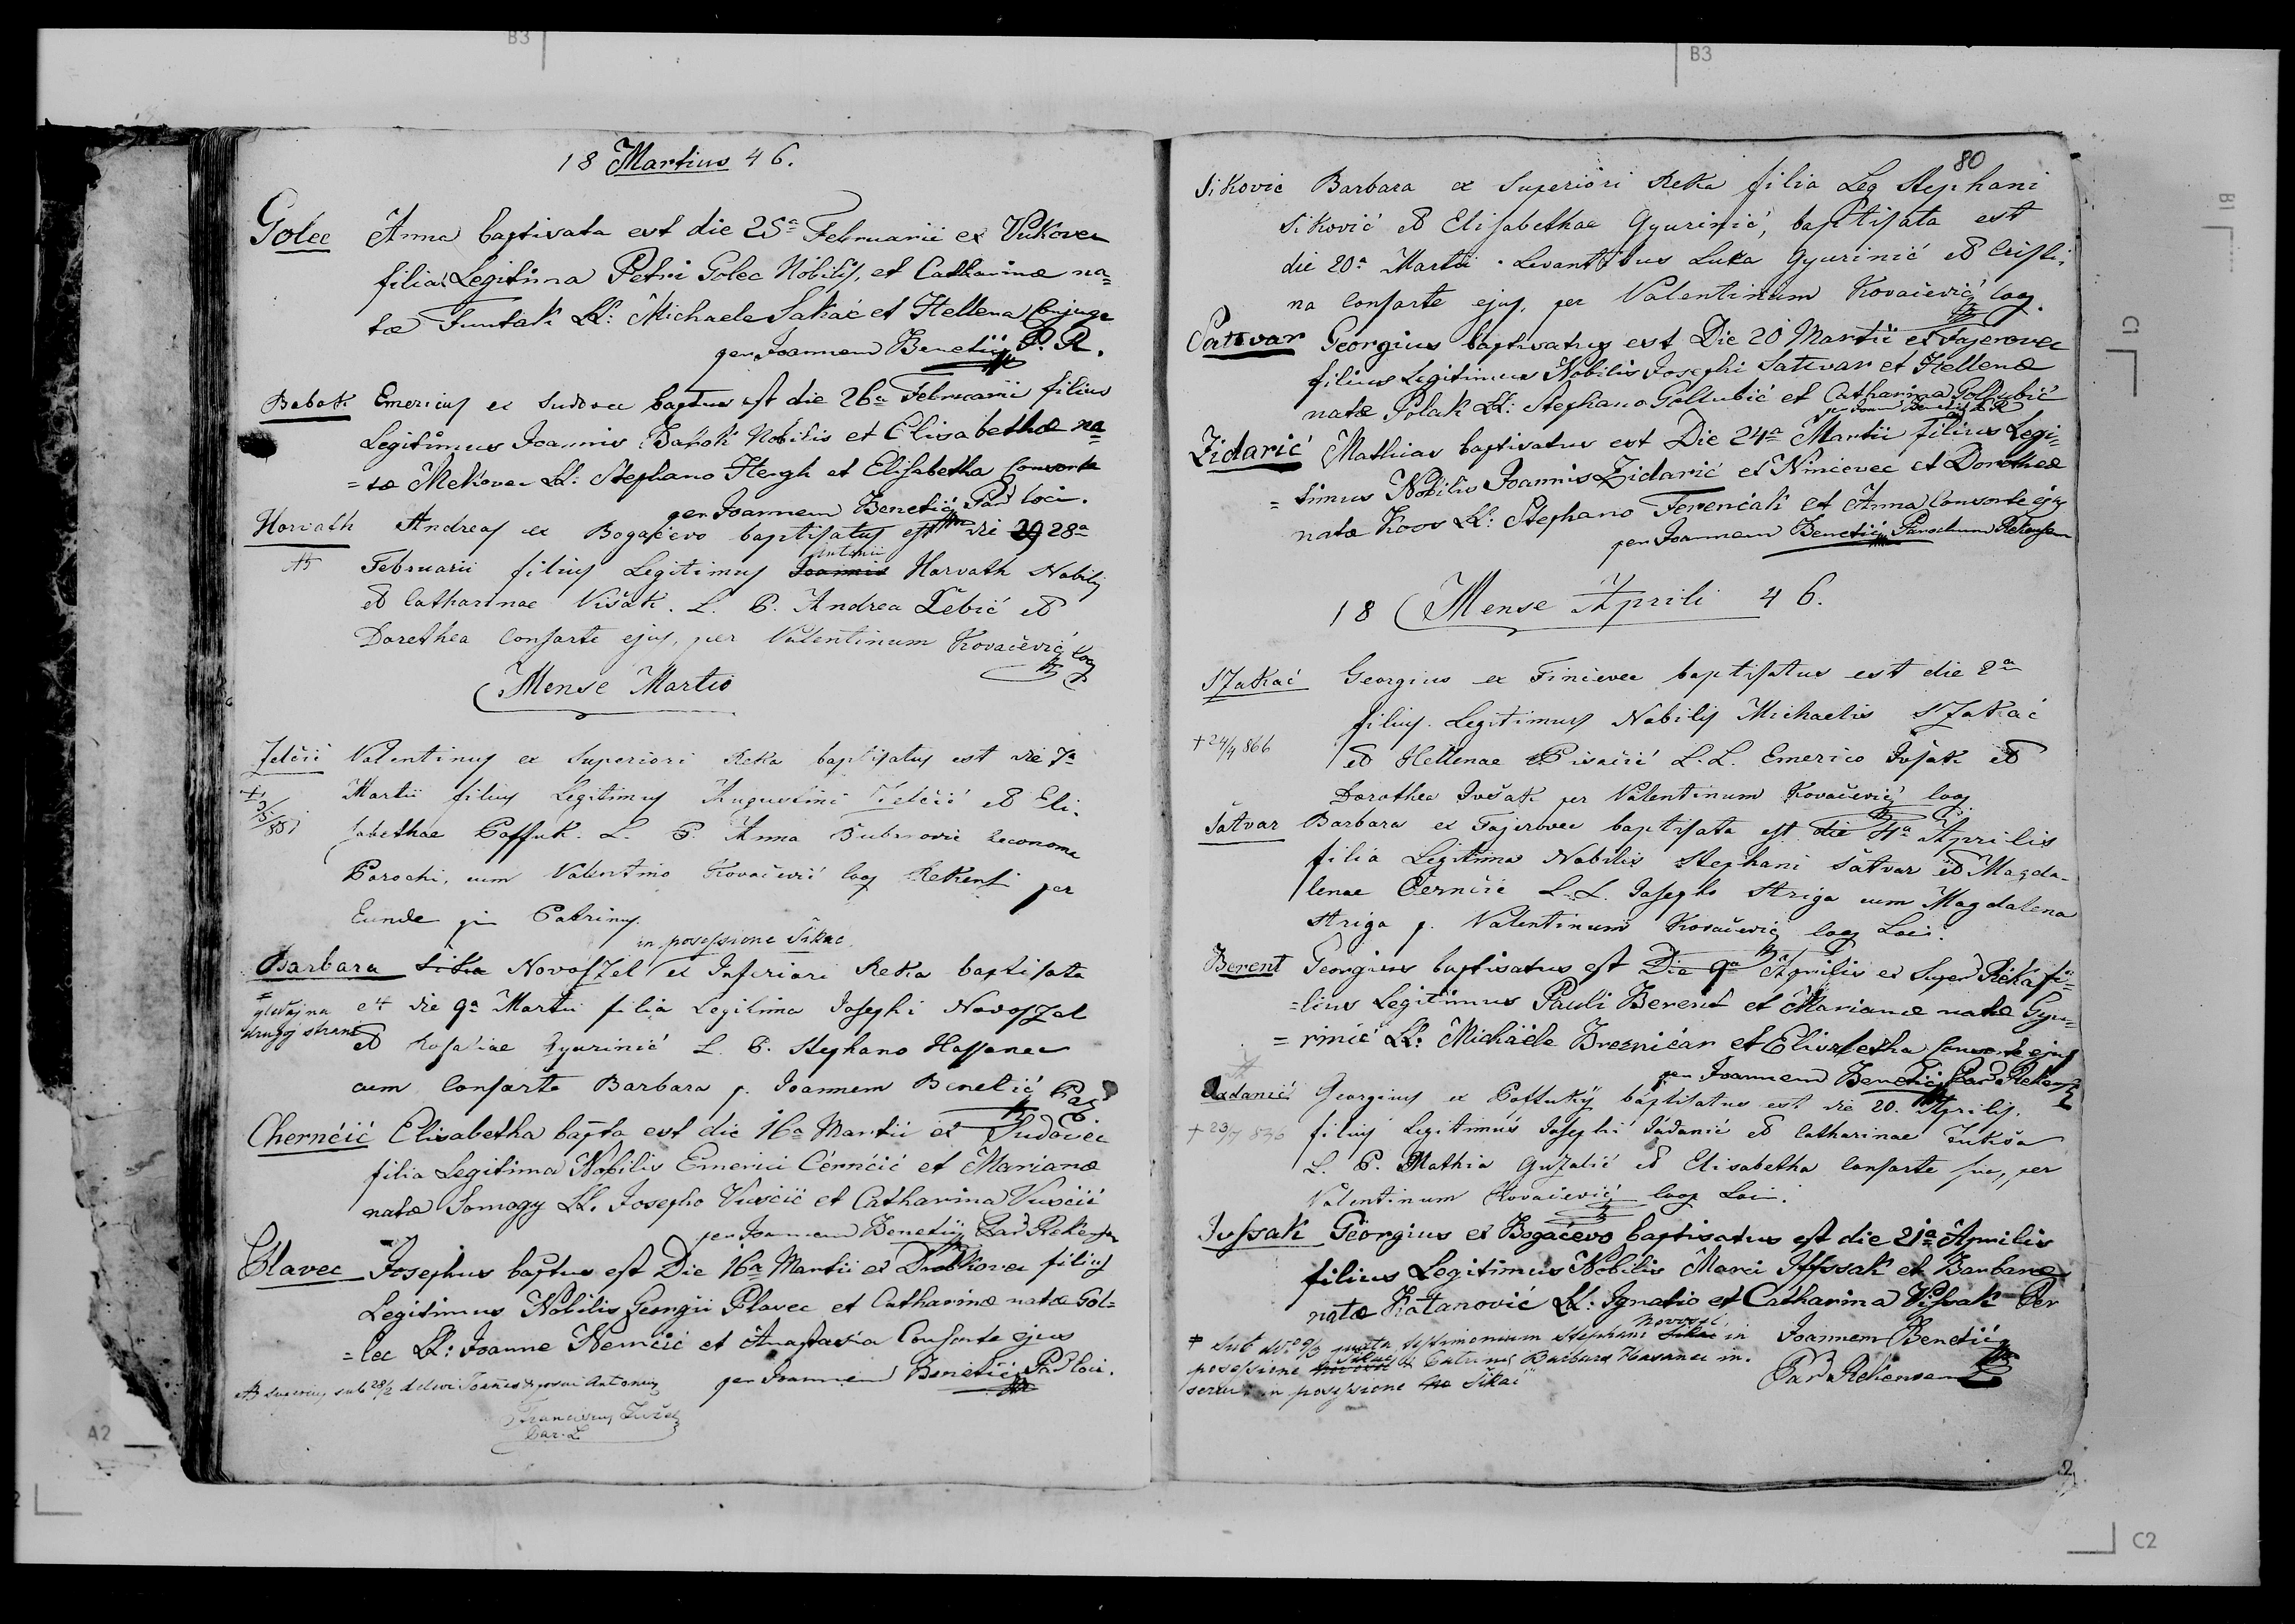 18 Martius 46.
Golec Anna baptisata est die 25a Februarii ex Vukovec
filia Legitima Petri Golec Nobilis, et Catharinæ na=
tæ Funtak LL: Michaele Sakać et Hellena Conjuge
per Joannem Benetić P. R.
Babok Emericus ex Sudovec baptus est die 26a Februarii filius
Legitimus Joannis Babok Nobilis et Elisabethæ na=
=tæ Mekovec LL: Stephano Hergh et Elisabetha Consorte
per Joannem Benetić Par loci.
Horvath Andreas ex Bogačevo baptisatus est die 29 28a
Antonii
Februarii filius Legitimus Joannis Horvath Nobilis
et Catharinae Višak. L. P. Andrea Žebić et
Dorethea Consorte ejus, per Valentinum Kovačević Coop
Mense Martio
Jelčić Valentinus ex Superiori Reka baptisatus est die 7a
Martii filius Legitimus Augustini Jelčić et Eli-
sabethae Possuk. L. P. Anna Dubrnović Oeconoma
Parochi, cum Valentino Kovačević Coop Rekensi per
Eunde qui Patrinus.
in possessione Šikac
Barbara Sika NovosZel ex Inferiori Reka baptisata
# gledaj na drugoj strani
est die 9a Martii filia Legitima Josephi NovosZel
et Rosaliae Gyurinić L. P. Stephano Hassanec
cum Consorte Barbara p. Joannem Benetić Par
Chernčić Elisabetha bapta est die 16a Martii ex Sudovec
filia Legitima Nobilis Emerici Černčić et Marianæ
natæ Somogy LL. Josepho Vusčić et Catharina Vusčić
per Joannem Benetić Par Rekensem
Plavec Josephus baptus est Die 16a Martii ex filius
Legitimus Nobilis Georgii Plavec et Catharinæ natæ Gol=
=lec LL: Joanne Nemčić et Anastasia Consorte ejus
per Joannem Benetić P. loci.
sub 28/2 delevi Joannes et posui Antonius
Franciscus
Par. L.
80
Siković Barbara ex Superiori Reka filia Leg Stephani
Siković et Elisabethae Gyurinić, baptisata est
die 20a Martii. Levantibus Luka Gyurinić et Cristi-
na Consorte ejus, per Valentinum Kovačević Coop.
Sattvar Georgius baptisatus est Die 20 Martii ex Fajerovec
filius Legitimus Nobilis Josephi Sattvar et Hellenæ
natæ Polak LL: Stephano Gollubić et Catharina Gollubić
per Joan Benetić P R
Zidarić Mathias baptisatus est Die 24a Martii filius Legi=
=timus Nobilis Joannis Zidarić ex Ninčevec et Dorotheæ
natæ Koos LL: Stephano Ferenčak et Anna Consorte ejus
per Joannem Benetić Parochum Rekensem
18 Mense Aprili 46.
SZakać Georgius ex Finčevec baptisatus est die 2a
filius. Legitimus Nobilis Michaelis SZakać
+ 24/4 866
et Hellenae Pisačić L.L. Emerico Ivšak et
Dorothea Ivšak per Valentinum Kovačević Coop
Šatvar Barbara ex Fajerovec baptisata est die 4a Aprilis
filia Legitima Nobilis Stephani Šatvar et Magda-
lenae Černčić L.L. Josepho Striga cum Magdalena
Striga p. Valentinum Kovačević Coop Loci.
Berent Georgius baptisatus est Die 9a Aprilis ex Super Reka fi=
=lius Legitimus Pauli Berent et Marianæ natæ Gyu=
=rinić LL: Michäele Brezničar et Elisabetha Consorte ejus
per Joannem Benetić Par Rekens
Jadanić Georgius ex Possuky baptisatus est die 20. Aprilis.
+ 23/7 836
filius Legitimus Josephi Jadanić et Catharinae Jukša
L. P. Mathia GuZalić et Elisabetha Consorte sue, per
Valentinum Kovačević Coop Loci.
Jussak Georgius ex Bogačevo baptisatus est die 21a Aprilis
filius Legitimus Nobilis Marci Jffssak et Barbaræ
natæ Katanović LL: Ignatio et Catharina Vissak Per
# Sub 9/3 juxta testimonium Stephani Novosel in Joannem Benetić
possessione Šikac Barbara Hasanec in. Par Rekensem
in possessione Šikac